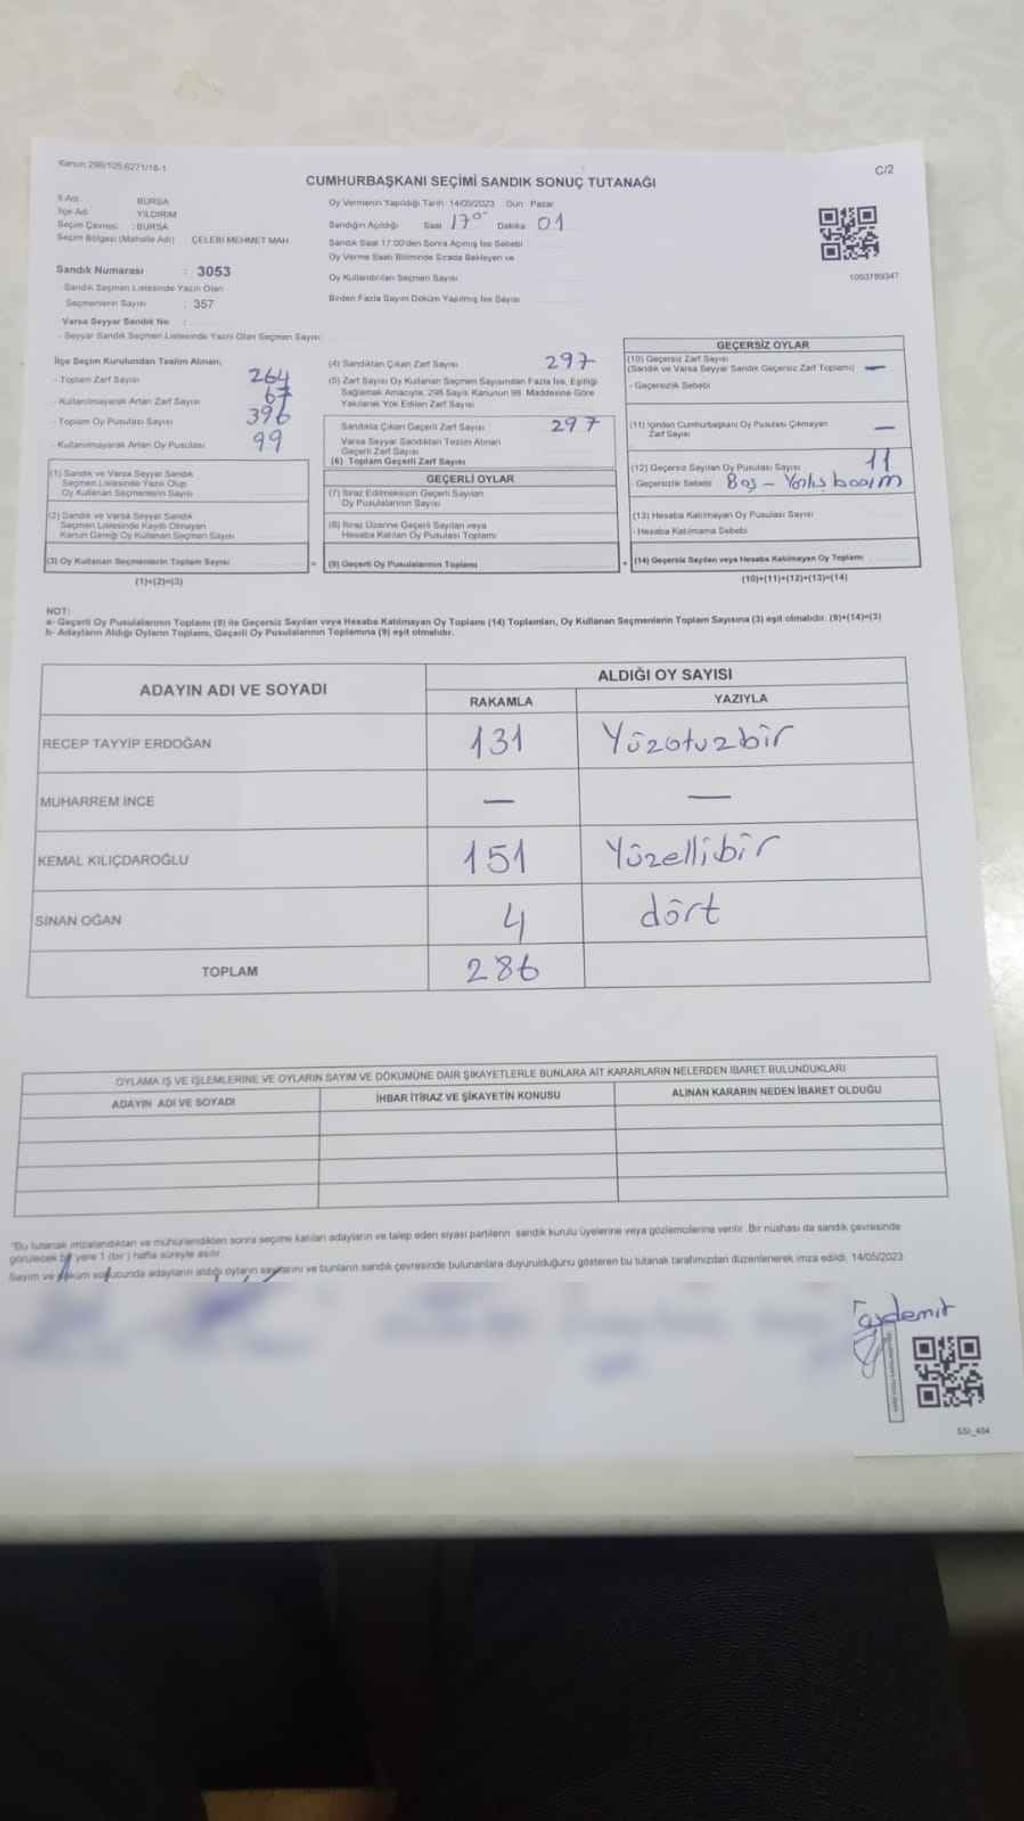 Kanun 298/105,6271/18-1
C/2
CUMHURBAŞKANI SEÇİMİ SANDIK SONUÇ TUTANAĞI
İl Adı : BURSA
İlçe Adı : YILDIRIM
Seçim Çevresi : BURSA
Seçim Bölgesi (Mahalle Adı) : ÇELEBİ MEHMET MAH.
Sandık Numarası : 3053
Sandık Seçmen Listesinde Yazılı Olan
Seçmenlerin Sayısı : 357
Varsa Seyyar Sandık No :
- Seyyar Sandık Seçmen Listesinde Yazılı Olan Seçmen Sayısı
Oy Vermenin Yapıldığı Tarih: 14/05/2023 Gün: Pazar
Sandığın Açıldığı Saat 17⁰⁰ Dakika 01
Sandık Saat 17:00'den Sonra Açılmış İse Sebebi
Oy Verme Saati Bitiminde Sırada Bekleyen ve
Oy Kullandırılan Seçmen Sayısı
Birden Fazla Sayım Döküm Yapılmış İse Sayısı
1093789347
İlçe Seçim Kurulundan Teslim Alınan;
- Toplam Zarf Sayısı 264
- Kullanılmayarak Artan Zarf Sayısı 67
- Toplam Oy Pusulası Sayısı 396
- Kullanılmayarak Artan Oy Pusulası 99
(1) Sandık ve Varsa Seyyar Sandık
Seçmen Listesinde Yazılı Olup
Oy Kullanan Seçmenlerin Sayısı
(2) Sandık ve Varsa Seyyar Sandık
Seçmen Listesinde Kayıtlı Olmayan
Kanun Gereği Oy Kullanan Seçmen Sayısı
(3) Oy Kullanan Seçmenlerin Toplam Sayısı
(1)+(2)=(3)
(4) Sandıktan Çıkan Zarf Sayısı 297
(5) Zarf Sayısı Oy Kullanan Seçmen Sayısından Fazla İse, Eşitliği
Sağlamak Amacıyla, 298 Sayılı Kanunun 98. Maddesine Göre
Yakılarak Yok Edilen Zarf Sayısı
Sandıkta Çıkan Geçerli Zarf Sayısı 297
Varsa Seyyar Sandıktan Teslim Alınan
Geçerli Zarf Sayısı
(6) Toplam Geçerli Zarf Sayısı
GEÇERLİ OYLAR
(7) İtiraz Edilmeksizin Geçerli Sayılan
Oy Pusulalarının Sayısı
(8) İtiraz Üzerine Geçerli Sayılan veya
Hesaba Katılan Oy Pusulası Toplamı
(9) Geçerli Oy Pusulalarının Toplamı
GEÇERSİZ OYLAR
(10) Geçersiz Zarf Sayısı
(Sandık ve Varsa Seyyar Sandık Geçersiz Zarf Toplamı) —
- Geçersizlik Sebebi
(11) İçinden Cumhurbaşkanı Oy Pusulası Çıkmayan
Zarf Sayısı —
(12) Geçersiz Sayılan Oy Pusulası Sayısı 11
- Geçersizlik Sebebi Boş -
(13) Hesaba Katılmayan Oy Pusulası Sayısı
- Hesaba Katılmama Sebebi
(14) Geçersiz Sayılan veya Hesaba Katılmayan Oy Toplamı
(10)+(11)+(12)+(13)=(14)
NOT:
a- Geçerli Oy Pusulalarının Toplamı (9) ile Geçersiz Sayılan veya Hesaba Katılmayan Oy Toplamı (14) Toplamları, Oy Kullanan Seçmenlerin Toplam Sayısına (3) eşit olmalıdır. (9)+(14)=(3)
b- Adayların Aldığı Oyların Toplamı, Geçerli Oy Pusulalarının Toplamına (9) eşit olmalıdır.
ADAYIN ADI VE SOYADI ALDIĞI OY SAYISI
RAKAMLA YAZIYLA
RECEP TAYYİP ERDOĞAN 131 Yüzotuzbir
MUHARREM İNCE — —
KEMAL KILIÇDAROĞLU 151 Yüzellibir
SİNAN OĞAN 4 dört
TOPLAM 286
OYLAMA İŞ VE İŞLEMLERİNE VE OYLARIN SAYIM VE DÖKÜMÜNE DAİR ŞİKAYETLERLE BUNLARA AİT KARARLARIN NELERDEN İBARET BULUNDUKLARI
ADAYIN ADI VE SOYADI İHBAR İTİRAZ VE ŞİKAYETİN KONUSU ALINAN KARARIN NEDEN İBARET OLDUĞU
"Bu tutanak imzalandıktan ve mühürlendikten sonra seçime katılan adayların ve talep eden siyasi partilerin sandık kurulu üyelerine veya gözlemcilerine verilir. Bir nüshası da sandık çevresinde
görülecek bir yere 1 (bir) hafta süreyle asılır.
Sayım ve döküm sonucunda adayların aldığı oyların sayılarını ve bunların sandık çevresinde bulunanlara duyurulduğunu gösteren bu tutanak tarafımızdan düzenlenerek imza edildi. 14/05/2023